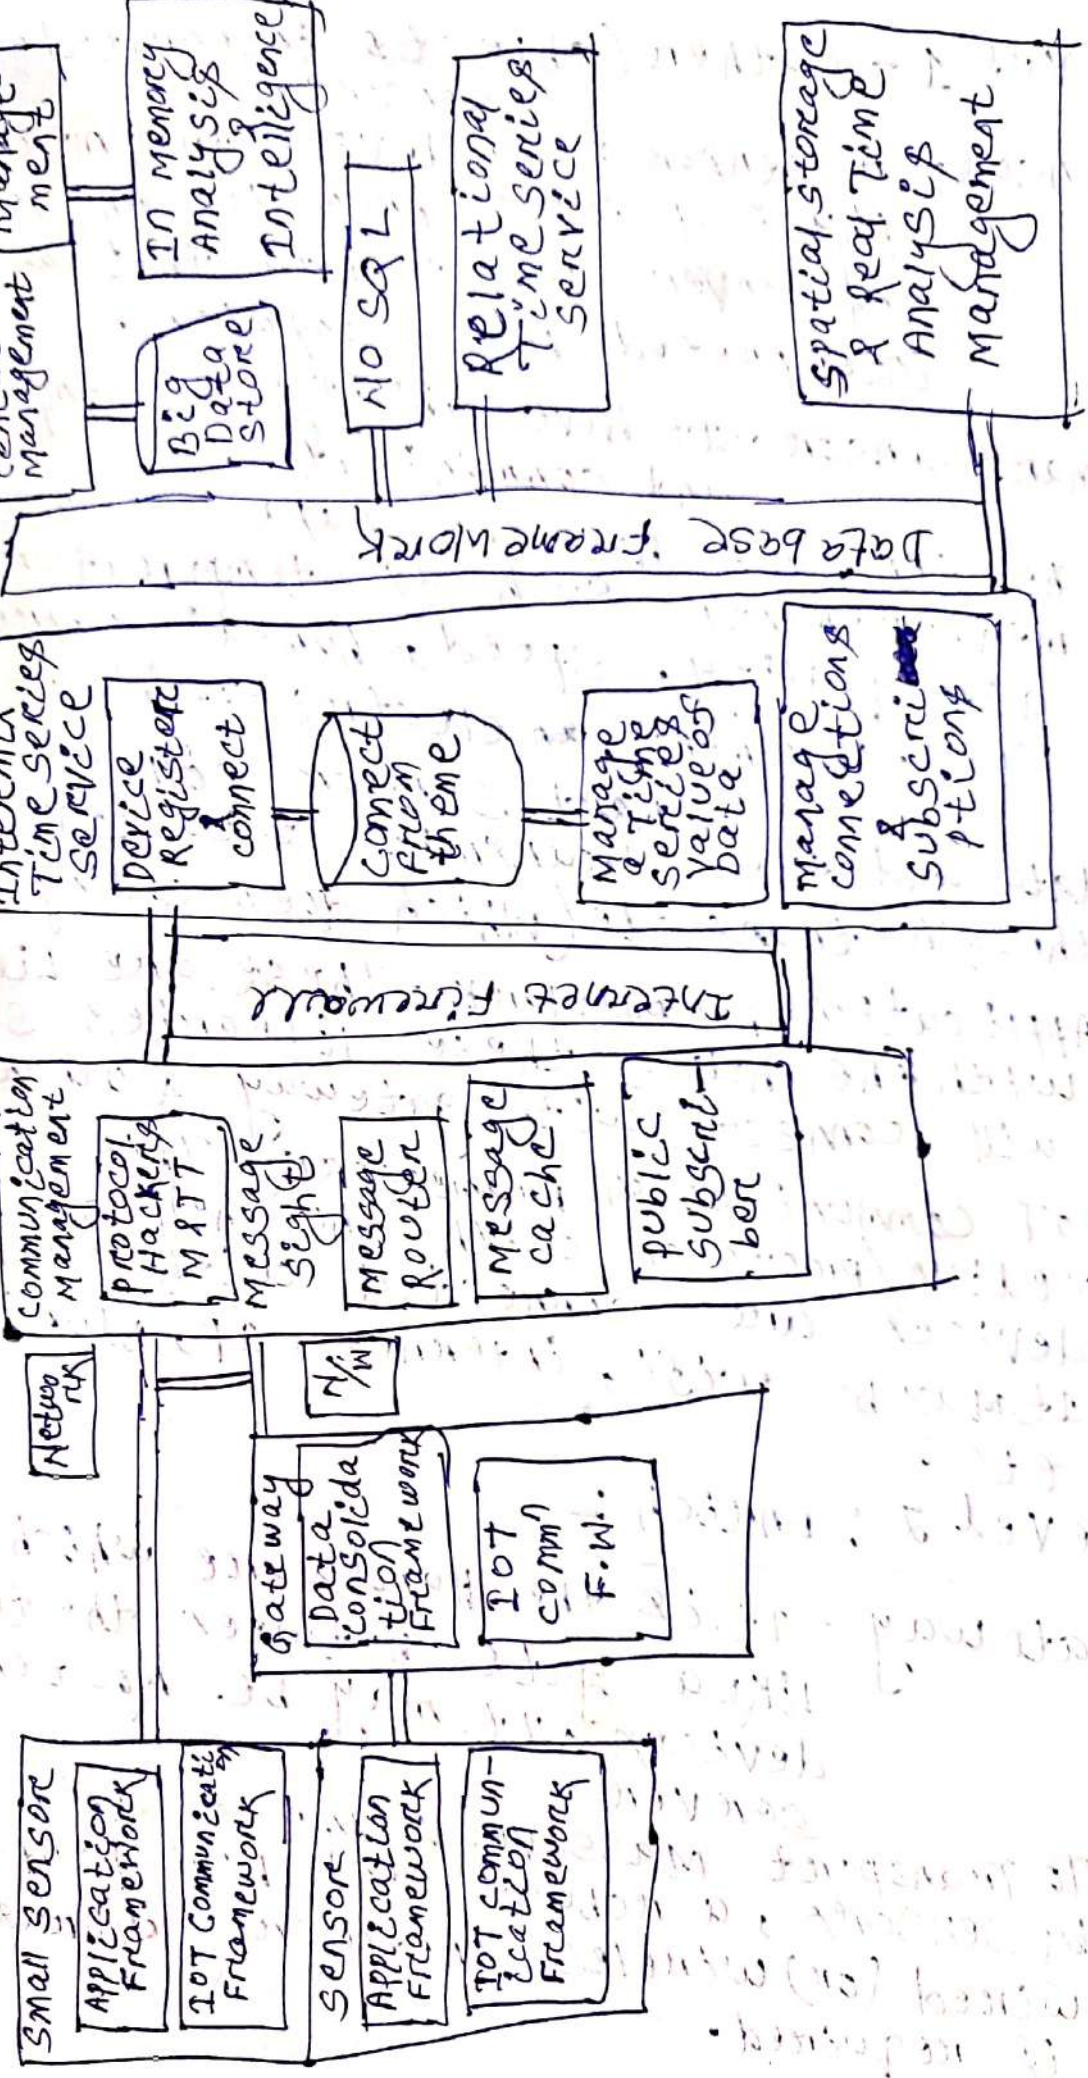 Small sensor
Application
Framework
IOT Communicati
on
Framework
Sensor
Application
Framework
IOT commun-
ication
Framework
Gateway
Data
consolida
tion
Framework
IOT
commⁿ
F.W.
Network
rk
N/W
communication
Management
Protocol
Hackers
MQTT
Message
sight
Message
Router
Message
cache
public
subscri-
ber
Internet Firewall
Time series
service
Device
Register
&
connect
Connect
from
theme
Manage
a Time
series
values of
Data
Manage
connections
&
subscri
ptions
Data base Framework
Management
Manage
ment
Big
Data
store
In memory
Analysis
&
Intelligence
NO SQL
Relational
Time series
service
Spatial storage
& Real Time
Analysis
Management